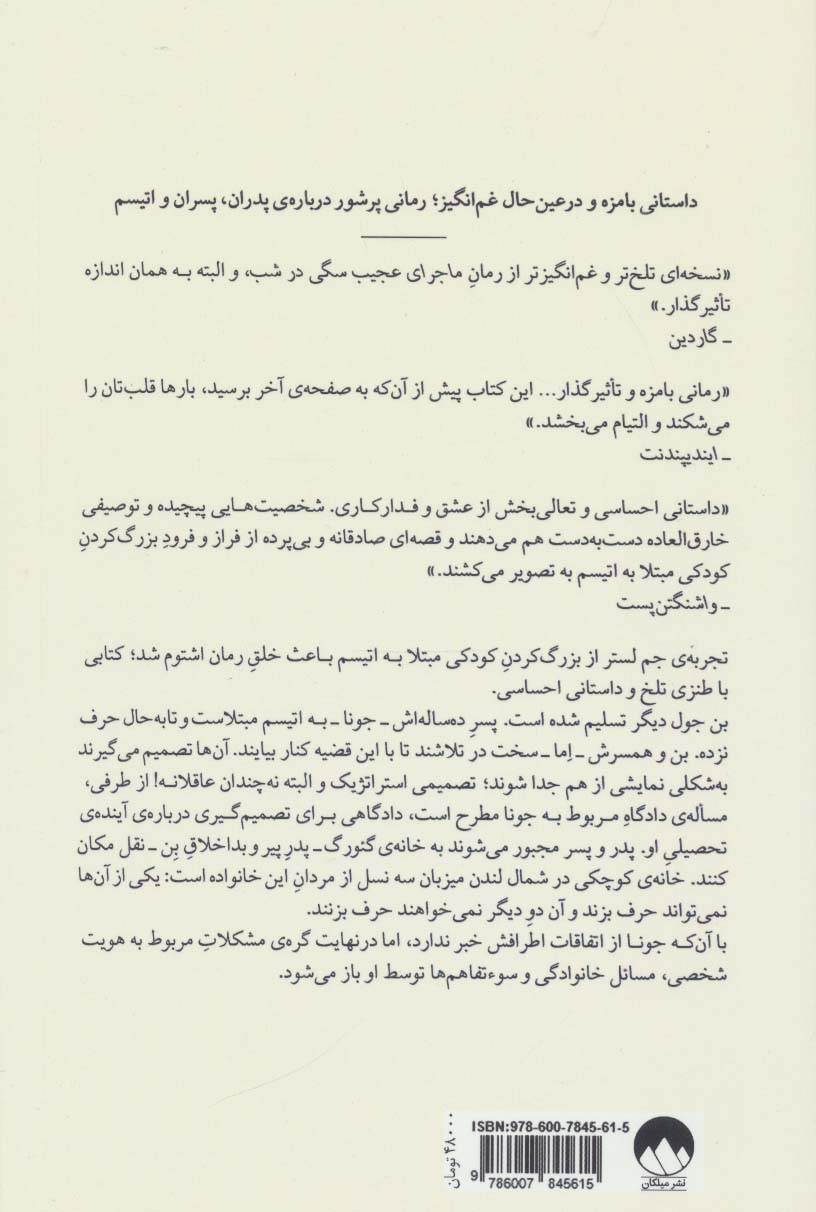 داستانی بامزه و درعین‌حال غم‌انگیز؛ رمانی پرشور درباره‌ی پدران، پسران و اتیسم
«نسخه‌ای تلخ‌تر و غم‌انگیزتر از رمانِ ماجرای عجیب سگی در شب، و البته به همان اندازه
تأثیرگذار.»
ـ گاردین
«رمانی بامزه و تأثیرگذار... این کتاب پیش از آن‌که به صفحه‌ی آخر برسید، بارها قلب‌تان را
می‌شکند و التیام می‌بخشد.»
ـ ایندیپندنت
«داستانی احساسی و تعالی‌بخش از عشق و فدارکاری. شخصیت‌هایی پیچیده و توصیفی
خارق‌العاده دست‌به‌دست هم می‌دهند و قصه‌ای صادقانه و بی‌پرده از فراز و فرودِ بزرگ‌کردنِ
کودکی مبتلا به اتیسم به تصویر می‌کشند.»
ـ واشنگتن‌پست
تجربه‌ی جم لستر از بزرگ‌کردنِ کودکی مبتلا به اتیسم باعث خلقِ رمان اشتوم شد؛ کتابی
با طنزی تلخ و داستانی احساسی.
بن جول دیگر تسلیم شده است. پسرِ ده‌ساله‌اش ـ جونا ـ به اتیسم مبتلاست و تابه‌حال حرف
نزده. بن و همسرش ـ اِما ـ سخت در تلاشند تا با این قضیه کنار بیایند. آن‌ها تصمیم می‌گیرند
به‌شکلی نمایشی از هم جدا شوند؛ تصمیمی استراتژیک و البته نه‌چندان عاقلانه! از طرفی،
مسأله‌ی دادگاهِ مربوط به جونا مطرح است، دادگاهی برای تصمیم‌گیری درباره‌ی آینده‌ی
تحصیلیِ او. پدر و پسر مجبور می‌شوند به خانه‌ی گئورگ ـ پدرِ پیر و بداخلاقِ بِن ـ نقل مکان
کنند. خانه‌ی کوچکی در شمال لندن میزبان سه نسل از مردانِ این خانواده است: یکی از آن‌ها
نمی‌تواند حرف بزند و آن دوِ دیگر نمی‌خواهند حرف بزنند.
با آن‌که جونا از اتفاقات اطرافش خبر ندارد، اما درنهایت گره‌ی مشکلاتِ مربوط به هویت
شخصی، مسائل خانوادگی و سوءتفاهم‌ها توسط او باز می‌شود.
۴۸۰۰۰ تومان
ISBN:978-600-7845-61-5
9 786007 845615
نشر میلکان